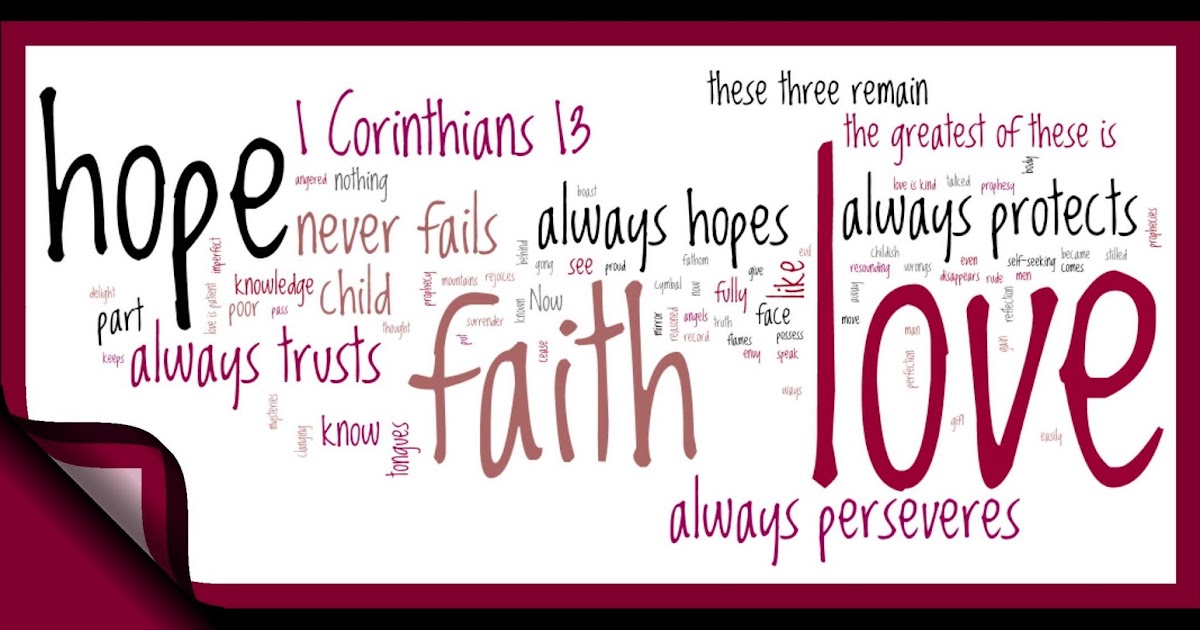 hope
1 Corinthians 13
these three remain
the greatest of these is
love
body
angered
nothing
boast
love is kind
talked
prophesy
never fails
always hopes
always protects
prophecies
imperfect
love is patient
behind
gong
see
proud
fathom
evil
like
give
childish
even
self-seeking
became
stilled
resounding
wrongs
disappears
rude
men
comes
delight
knowledge
child
prophecy
mountains
rejoices
poor
pass
known
Now
cymbal
now
fully
away
reflection
part
thought
surrender
faith
mirror
reasoned
angels
truth
face
move
man
keeps
always trusts
put
cease
record
flames
possess
envy
speak
gain
perfection
ways
mysteries
clanging
know
tongues
gift
easily
always perseveres